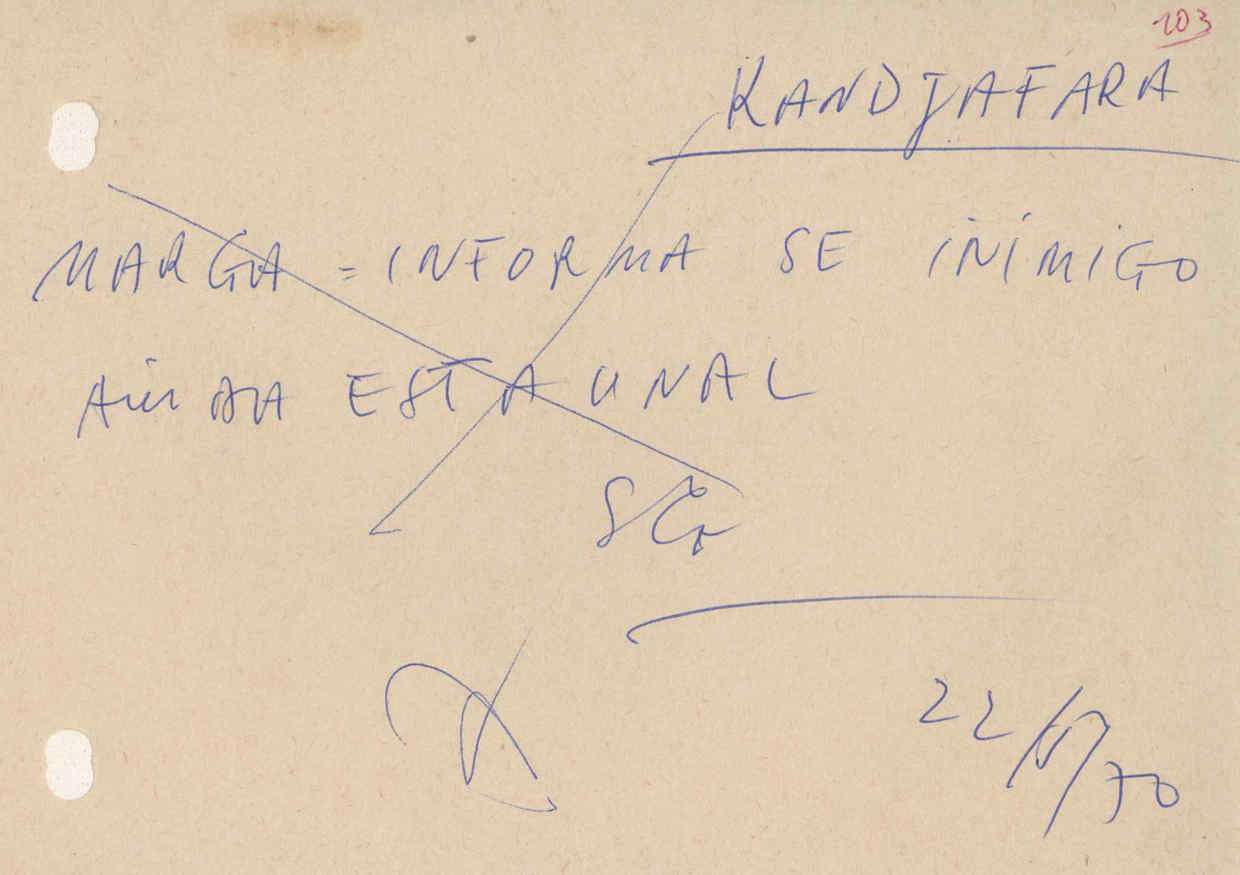 103
KANDJAFARA
MARGA = INFORMA SE INIMIGO
AINDA ESTA UNAL
22/ /70